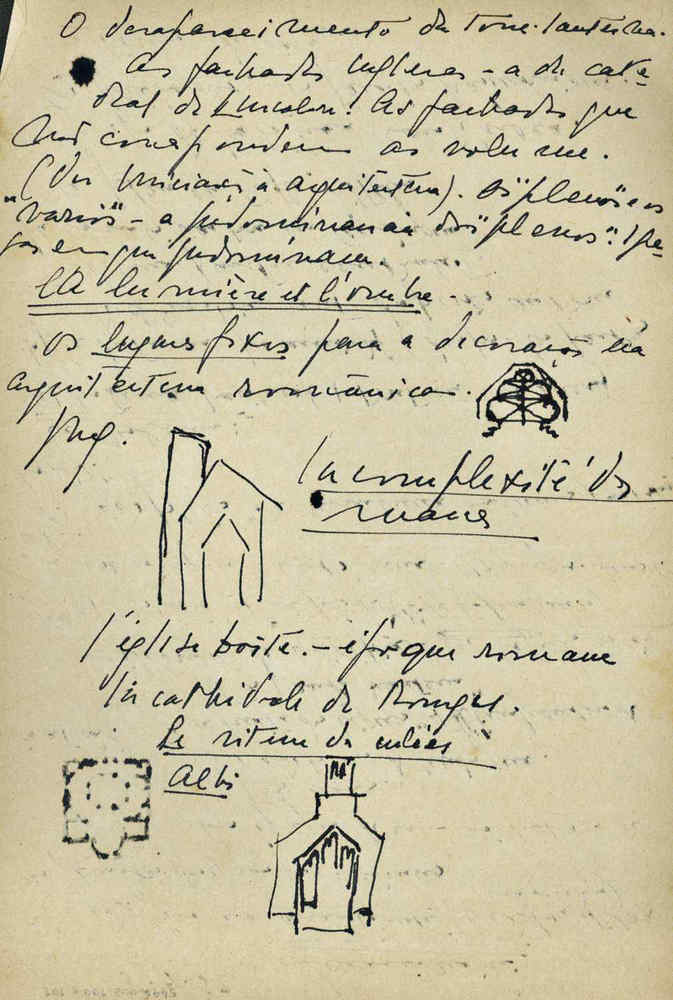 O desaparecimento da torre-lanterna.
As fachadas inglesas - a da cate-
dral de Lincoln. As fachadas que
não correspondem ao volume.
(Da à arquitectura). Os "plenos" e os
"vazios" - a predominancia dos "plenos".
em que predominam.
La lumière et l'ombre.
os lugares fixos para a decoração na
arquitectura românica.
La complexité des
l'église boîte. - époque romane
la cathédrale de Bourges.
Le ritme de
Albi